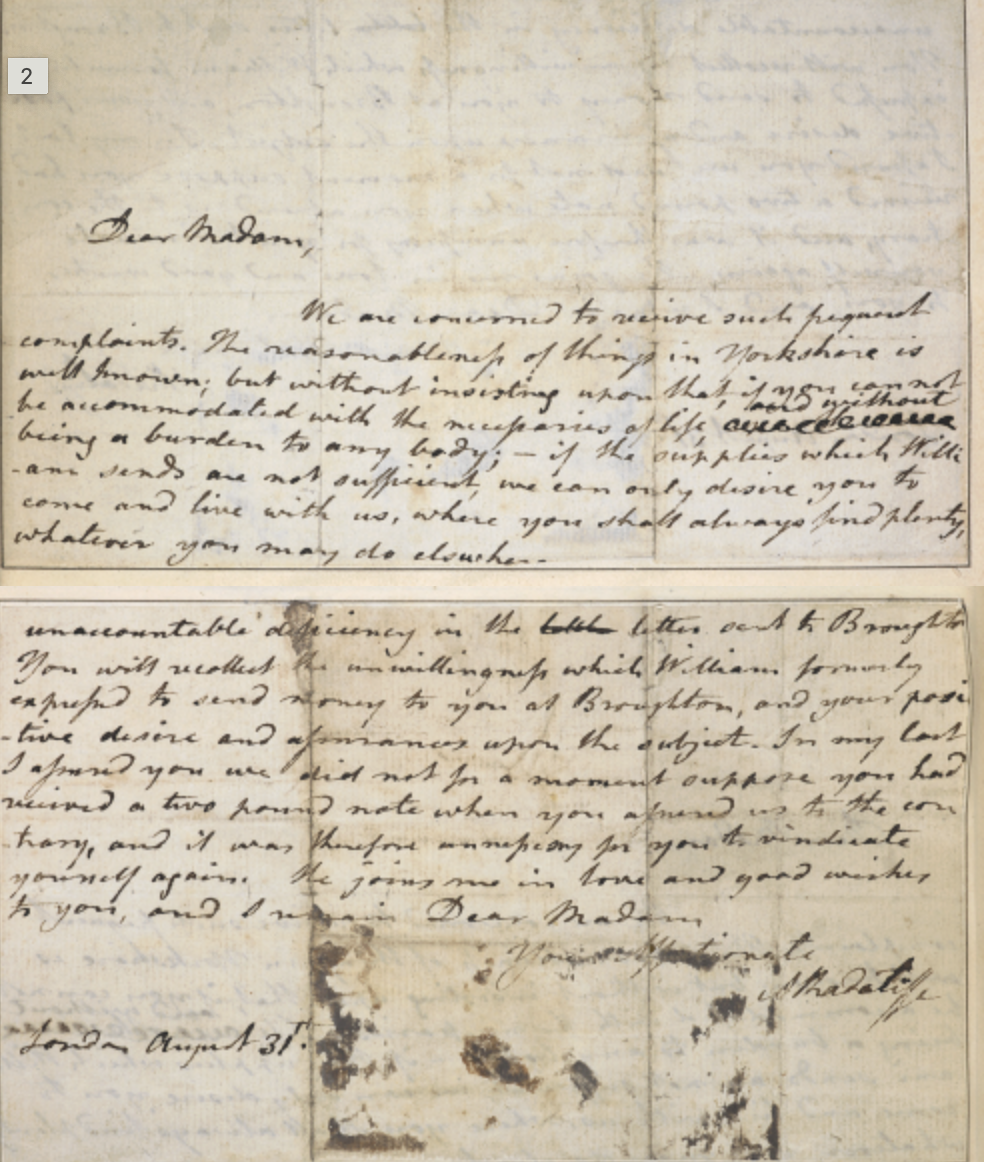 2
Dear Madam,
We are concerned to receive such frequent
complaints. The reasonableness of things in Yorkshire is
well known; but without insisting upon that, if you cannot
be accommodated with the necessaries of life, and without
being a burden to any body; – if the supplies which Willi
-am sends are not sufficient, we can only desire you to
come and live with us, where you shall always find plenty,
whatever you may do elsewhere.
unaccountable deficiency in the letter sent to Broughton
You will recollect the unwillingness which William formerly
expressed to send money to you at Broughton, and your posi
-tive desire and assurances upon the subject. In my last
I assured you we did not for a moment suppose you had
received a two pound note when you assured us to the con
-trary, and it was therefore unnecessary for you to vindicate
yourself again. He joins me in love and good wishes
to you, and I remain Dear Madam
Your affectionate
A Radcliffe
London August 31st.